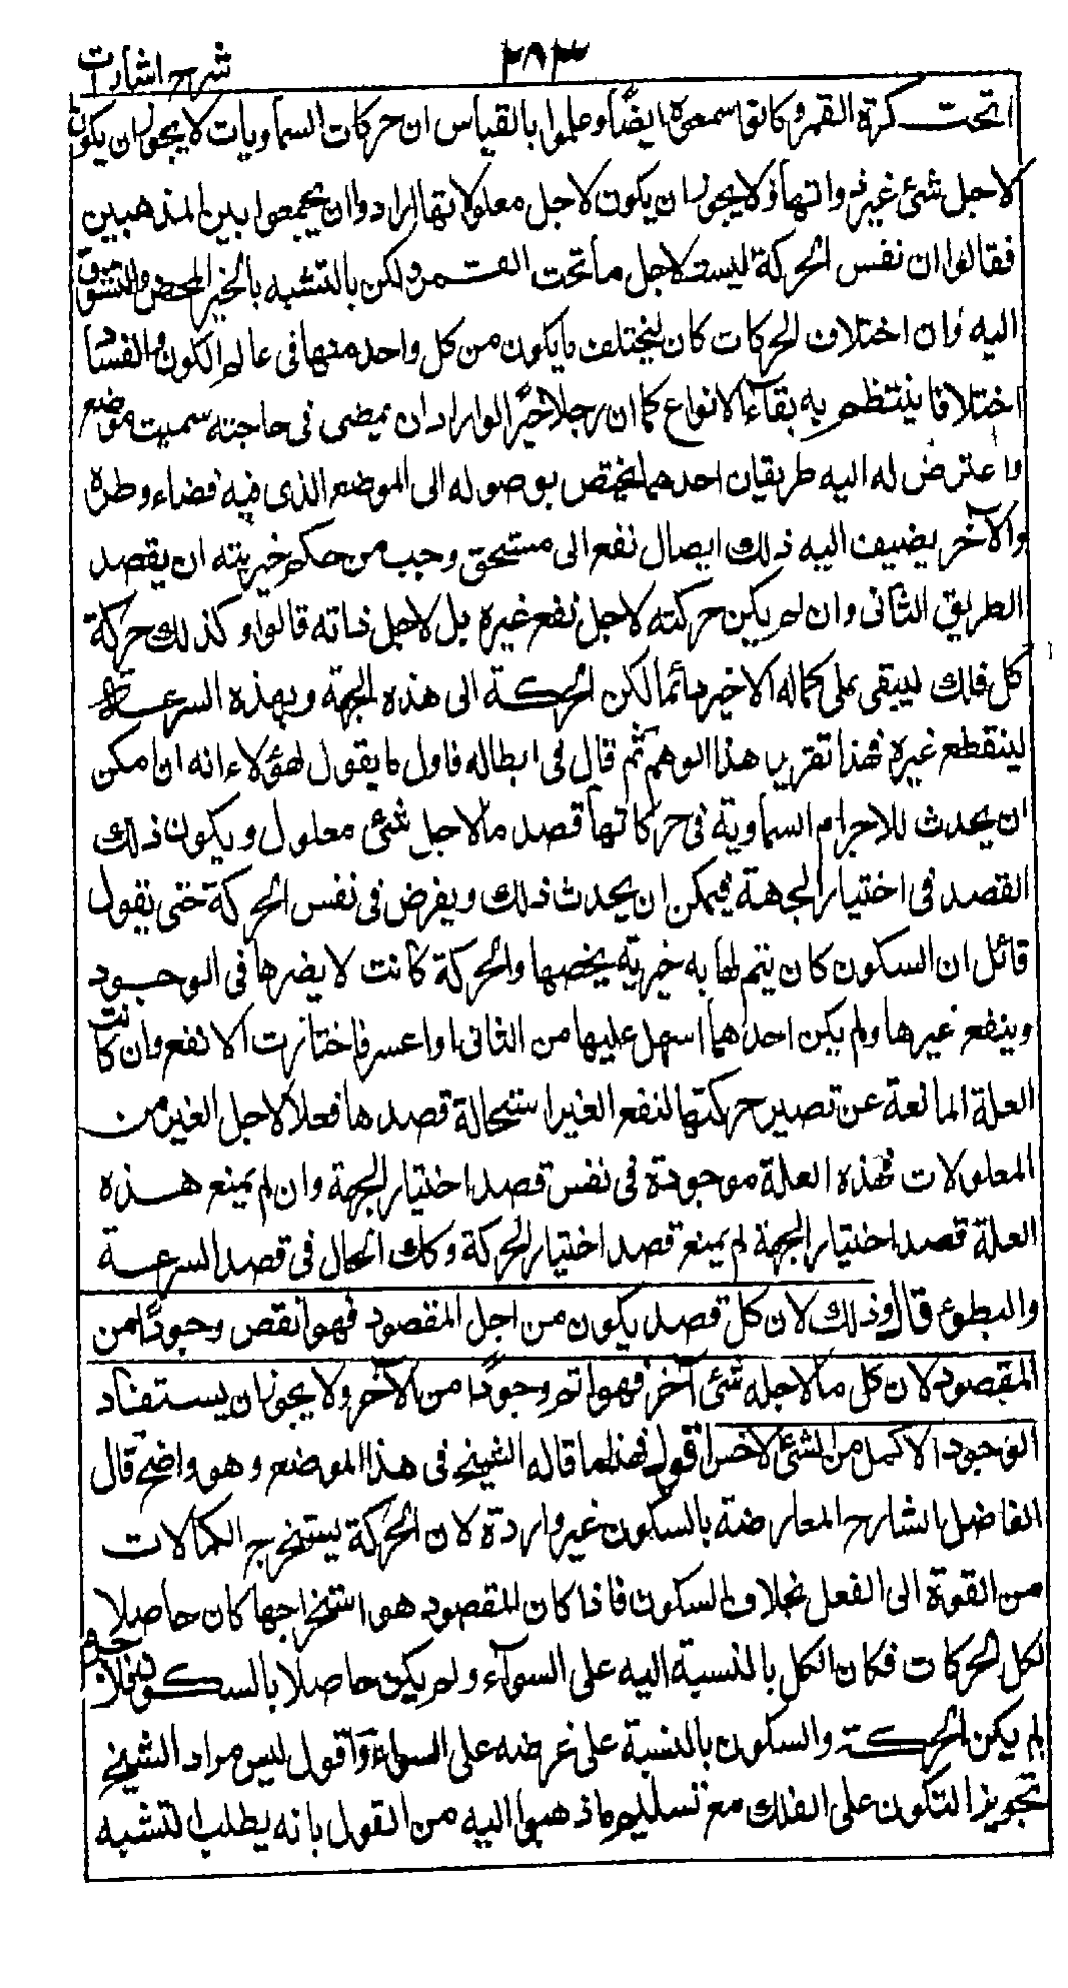 شرح اشارات
٢٨٣
ا تحت كرة القمر وكانوا سمعوه ايضًا وعلموا بالقياس ان حركات السماويات لا يجوز ان يكون
لاجل شئ غير ذواتها ولا يجوز ان يكون لاجل معلولاتها ارادوا ان يجمعوا بين المذهبين
فقالوا ان نفس الحركة ليست لاجل ما تحت القمر ولكن بالتشبه بالخير المحض والتشوق
اليه وان اختلاف الحركات كان ليختلف ما يكون من كل واحد منها فى عالم الكون والفساد
اختلافا ينتظم به بقاء الانواع كما ان رجلا خيّرا لو اراد ان يمضى فى حاجته سميت موضع
واعترض له اليه طريقان احدهما يختص بوصوله الى الموضع الذى فيه قضاء وطره
والآخر يضيف اليه ذلك ايصال نفع الى مستحق وجب من حكم خيريته ان يقصد
الطريق الثانى وان لم يكن حركته لاجل نفع غيره بل لاجل ذاته قالوا وكذلك حركة
كل فلك ليبقى على كماله الاخير دائما لكن الحركة الى هذه الجهة وبهذه السرعة
لينقطع غيره فهذا تقرير هذا الوهم ثم قال فى ابطاله فاول ما يقول لهؤلاء انه ان امكن
ان يحدث للاجرام السماوية فى حركاتها قصد ما لاجل شئ معلول ويكون ذلك
القصد فى اختيار الجهة فيمكن ان يحدث ذلك ويفرض فى نفس الحركة حتى يقول
قائل ان السكون كان يتم لها به خيرية يخصها والحركة كانت لا يضرها فى الوجود
وينفع غيرها ولم يكن احدهما اسهل عليها من الثانى او اعسر فاختارت الانفع وان كانت
العلة المانعة عن تصير حركتها لنفع الغير استحالة قصدها فعلا لاجل الغير من
المعلولات فهذه العلة موجودة فى نفس قصد اختيار الجهة وان لم يمنع هذه
العلة قصد اختيار الجهة لم يمنع قصد اختيار الحركة وكك الحال فى قصد السرعة
والبطوء قال وذلك لان كل قصد يكون من اجل المقصود فهو انقص وجودًا من
المقصود لان كل ما لاجله شئ آخر فهو اتم وجودًا من الآخر ولا يجوز ان يستفاد
الوجود الاكمل من الشئ الاخس اقول فهذا ما قاله الشيخ فى هذا الموضع وهو واضح قال
الفاضل الشارح المعارضة بالسكون غير واردة لان الحركة يستخرج الكمالات
من القوة الى الفعل بخلاف السكون فاذا كان المقصود هو استخراجها كان حاصلا
لكل الحركات فكان الكل بالنسبة اليه على السواء ولم يكن حاصلا بالسكون فلا جرم
لم يكن الحركة والسكون بالنسبة على غرضه على السواء واقول ليس مراد الشيخ
تجويز السكون على الفلك مع تسليم ما ذهبوا اليه من القول بانه يطلب التشبه